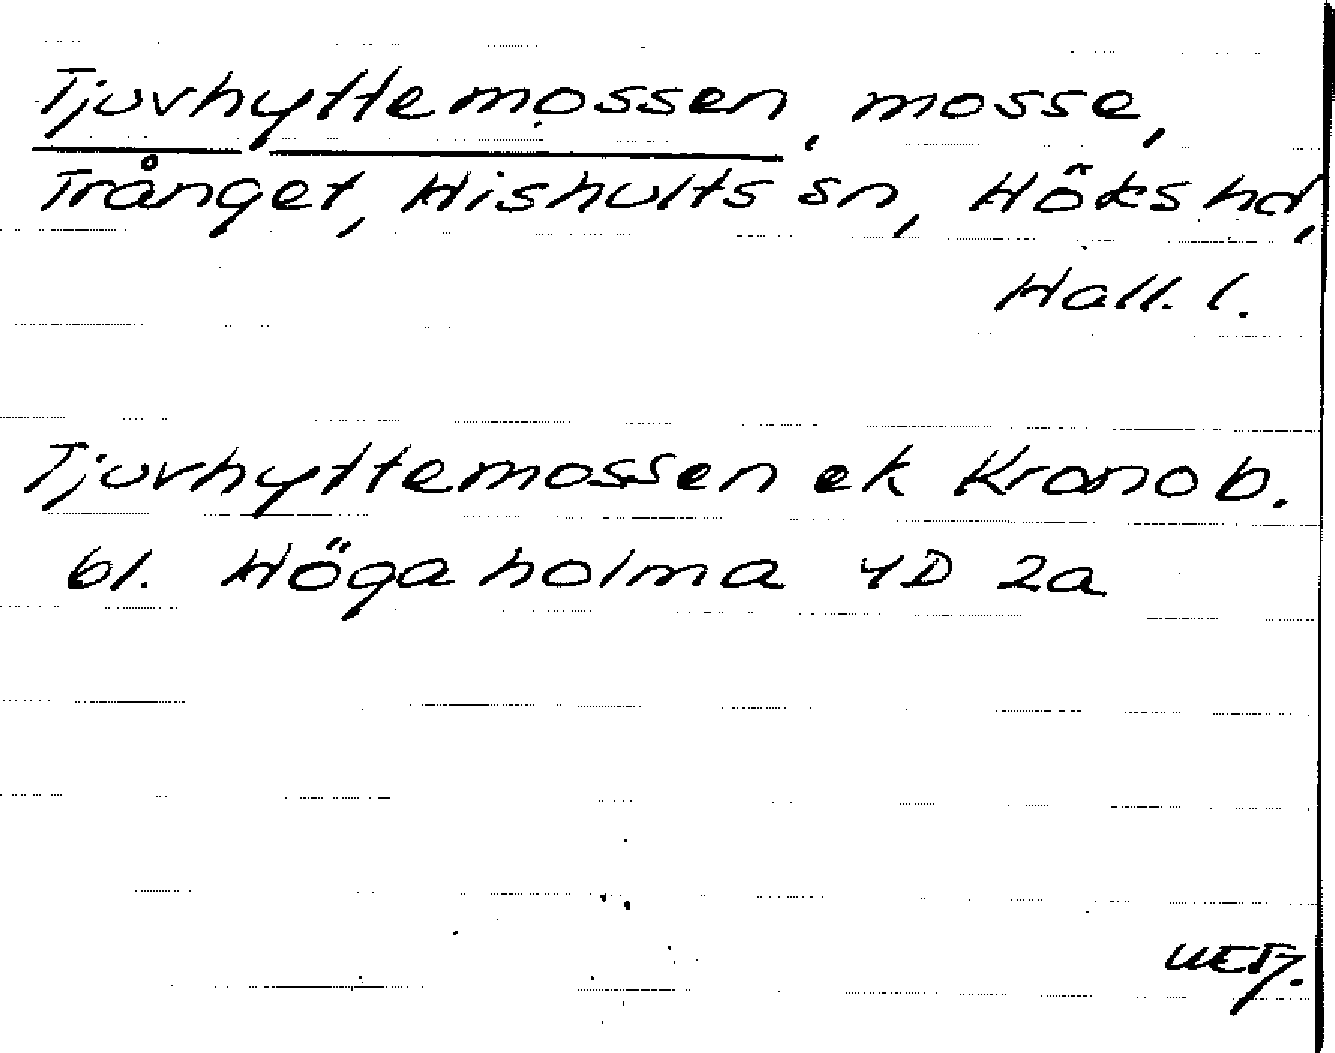 Tjuvhyttemossen, mosse,
Trånget, Hishults sn, Höks hd,
Hall. l.
Tjuvhyttemossen ek Kronob.
bl. Högaholma 4D 2a